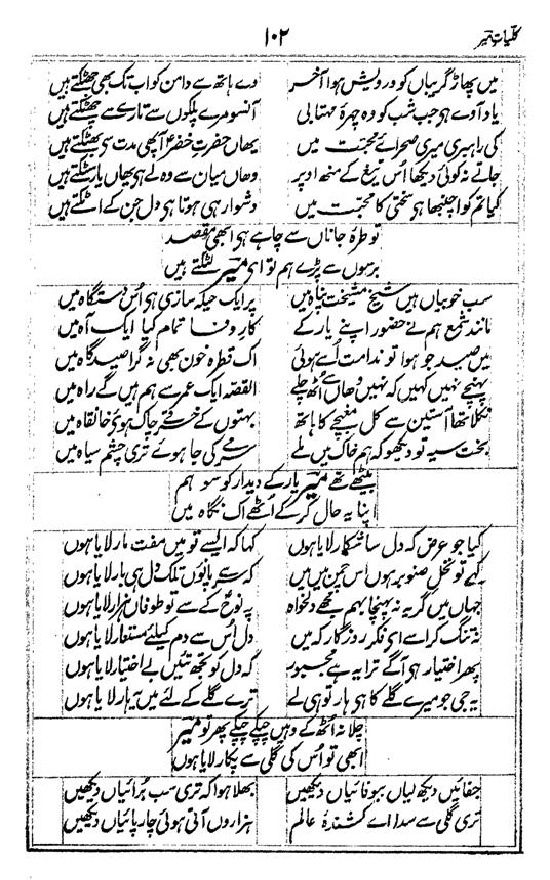 کلیاتِ میر
۱۰۲
میں پھاڑ گریباں کو درویش ہوا آخر وے ہاتھ سے دامن کو اب تک بھی جھٹکتے ہیں
یاد آوے ہے جب شب کو وہ چہرۂ مہتابی آنسو مرے پلکوں سے تارے سے چھٹکتے ہیں
کی راہبری میری صحرائے محبت میں یھاں حضرتِ خضر آپھی مدت سے بھٹکتے ہیں
جاتے نہ کوئی دیکھا اُس تیغ کے منھ اوپر وھاں میان سے وہ لے ہی یھاں یار سٹکتے ہیں
کیا تم کو اچنبھا ہے سختی کا محبت میں دشوار ہی ہوتا ہی دل جن کے اٹکتے ہیں
تو طرۂ جاناں سے چاہے ہی ابھی مقصد
برسوں سے پڑے ہم تو ای میر لٹکتے ہیں
سب خوبیاں ہیں شیخِ مشیخت پناہ میں پر ایک حیلہ سازی ہی اُس دستگاہ میں
مانند شمع ہم نے حضور اپنے یار کے کارِ وفا تمام کیا ایک آہ میں
میں صید جو ہوا تو ندامت اُسے ہوئی اک قطرہ خون بھی نہ گرا صیدگاہ میں
پہنچے نہیں کہیں کہ نہیں وھاں سے اُٹھ چلے القصہ ایک عمر سے ہم ہیں گے راہ میں
نکلا تھا آستین سے کل مغبچے کا ہاتھ بہتوں کے خرقے چاک ہوئے خانقاہ میں
بختِ سیہ تو دیکھو کہ ہم خاک میں ملے سرمے کی جا ہوئے تری چشمِ سیاہ میں
بیٹھے تھے میر یار کے دیدار کو سو ہم
اپنا یہ حال کر کے اُٹھے اک نگاہ میں
کیا جو عرض کہ دل سا شکار لایا ہوں کہا کہ ایسے تو میں مفت مار لایا ہوں
کہے تو نخلِ صنوبر ہوں اس چمن میں میں کہ سر سے پاؤں تلک دل ہی بار لایا ہوں
جہاں میں گریہ نہ پہنچا بہم مجھے دلخواہ پہ نوح کے سے تو طوفاں ہزار لایا ہوں
نہ تنگ کر اسے ای فکرِ روزگار کہ میں دل اُس سے دم کیلئے مستعار لایا ہوں
پھر اختیار ہی آگے ترا یہ ہے مجبور کہ دل کو تجھ تئیں بے اختیار لایا ہوں
یہ جی جو میرے گلے کا ہی ہار تو ہی لے ترے گلے کے لئے میں یہ ہار لایا ہوں
چلا نہ اُٹھ کے وہیں چپکے چپکے پھر تو میر
ابھی تو اُس کی گلی سے پکار لایا ہوں
جفائیں دیکھ لیاں بیوفائیاں دیکھیں بھلا ہوا کہ تری سب بُرائیاں دیکھیں
تری گلی سے سدا اے کشندۂ عالم ہزاروں آتی ہوئی چارپائیاں دیکھیں